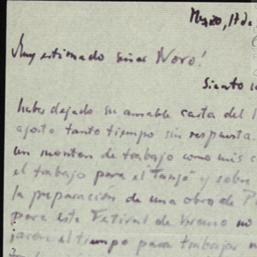 17 de
Muy estimado señor Novo!
Siento
haber dejado su amable carta del
agosto tanto tiempo sin respuesta.
un monton de trabajo como mis
el trabajo para el y sobre
la preparación de una obra de
para este Festival de Verano no
el tiempo para trabajar